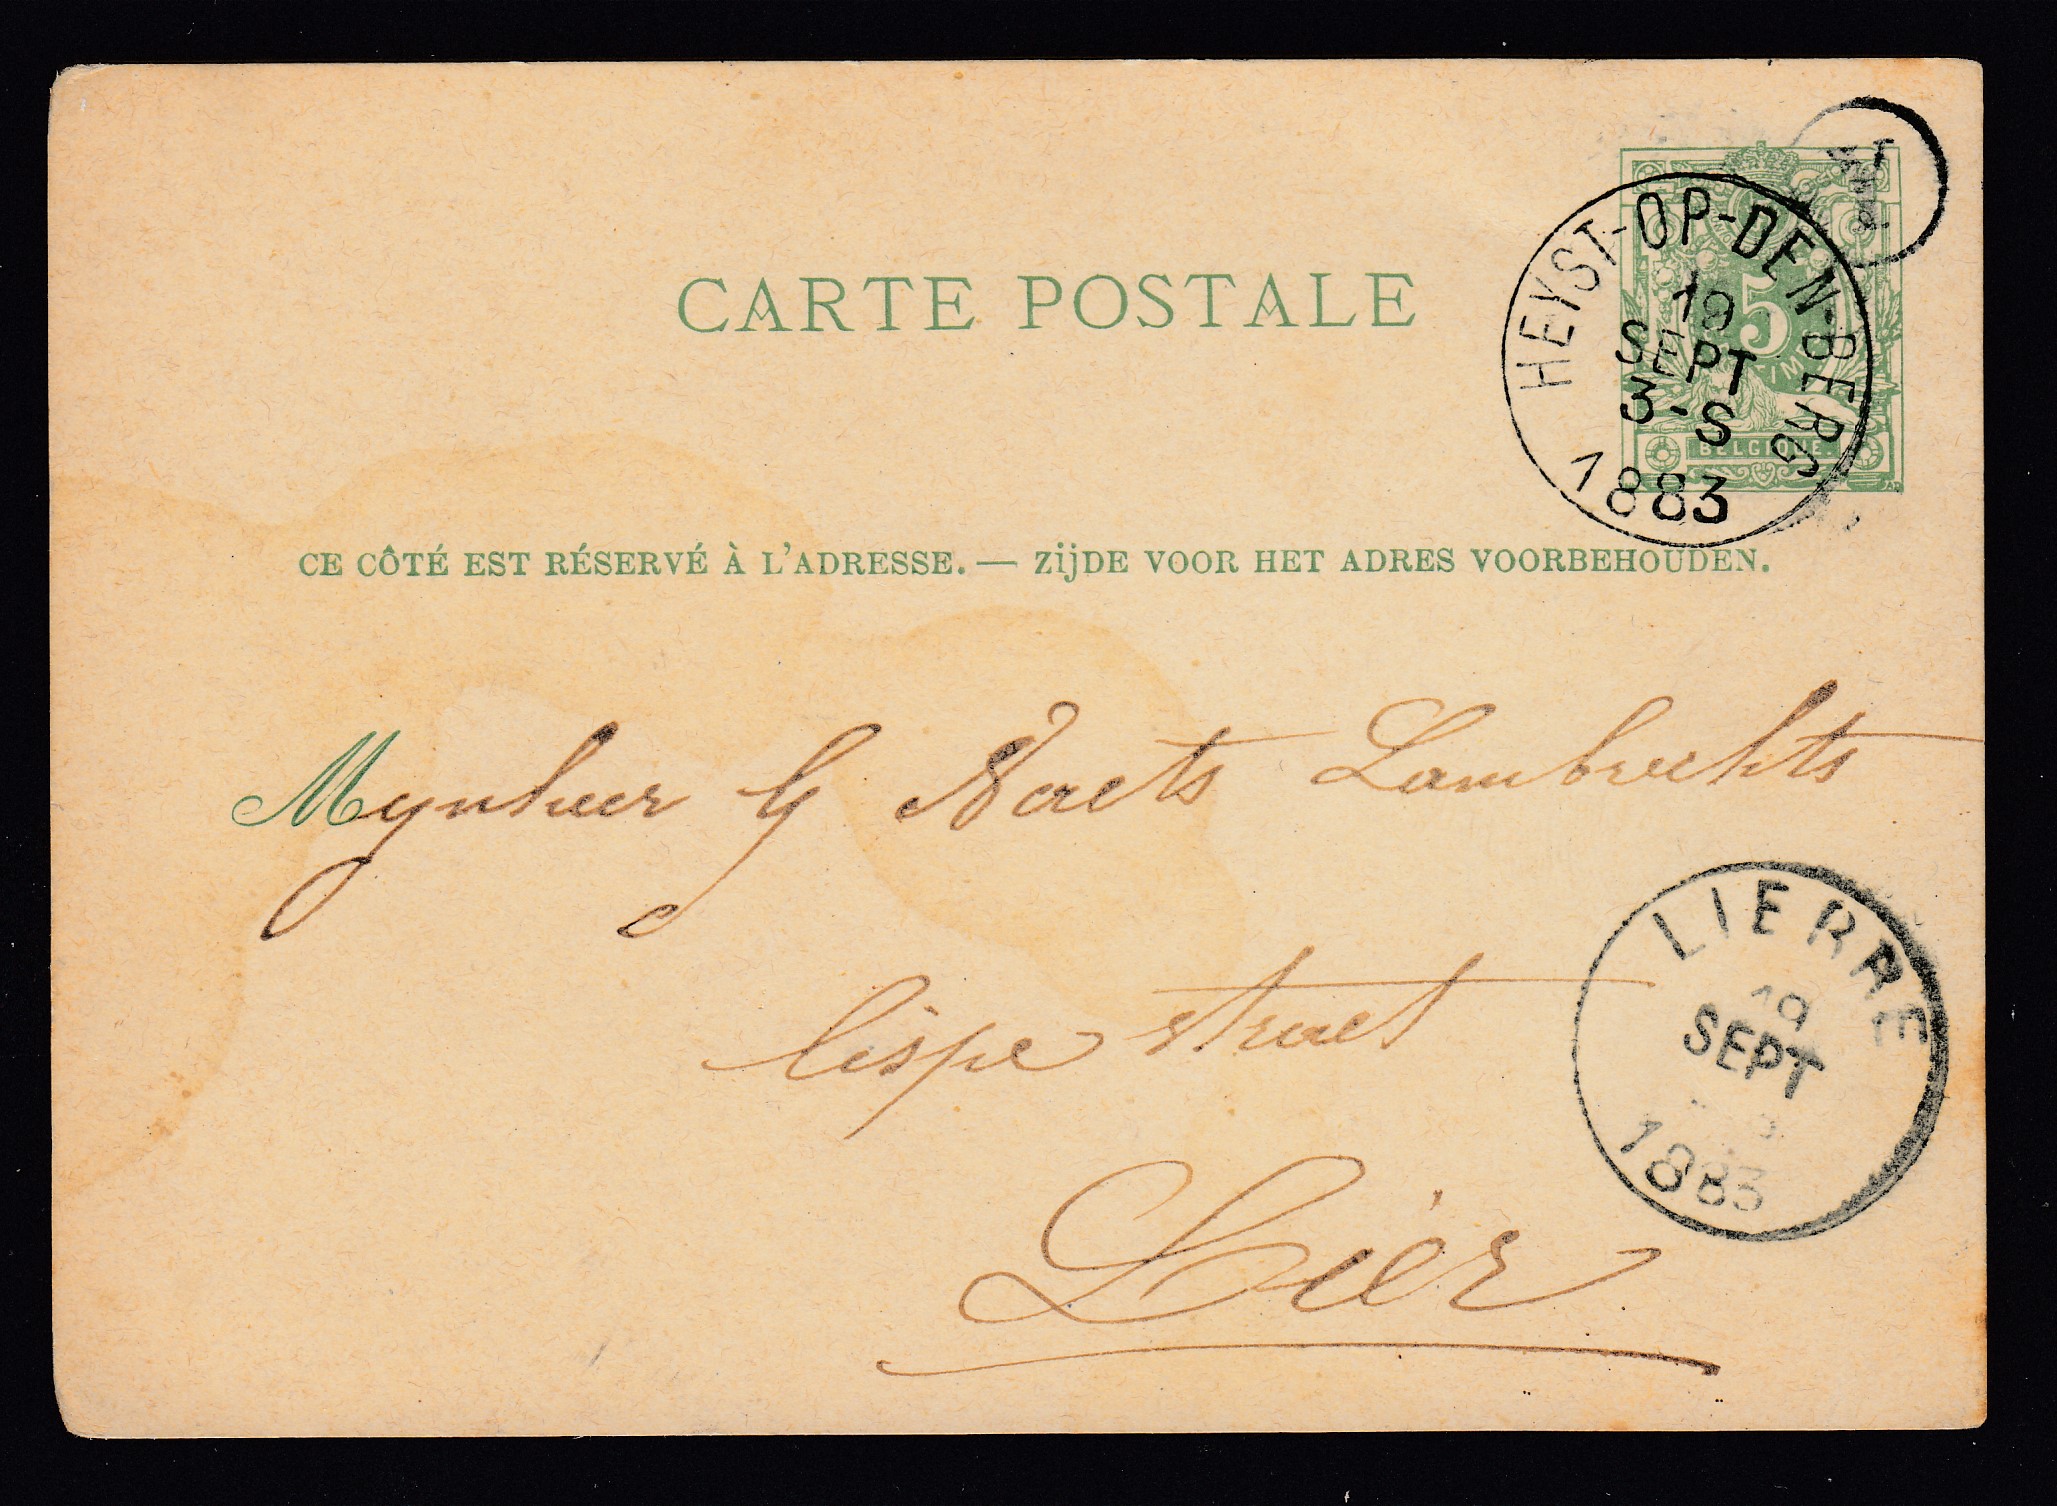 CARTE POSTALE
HEYST-OP-DEN-BERG
19
SEPT
3-S
1883
5
BELGIQUE.
CE CÔTÉ EST RÉSERVÉ À L'ADRESSE. — ZijDE VOOR HET ADRES VOORBEHOUDEN.
Mynheer G Naets Lambrechts
lispe straet
Lier
LIERRE
19
SEPT
1883